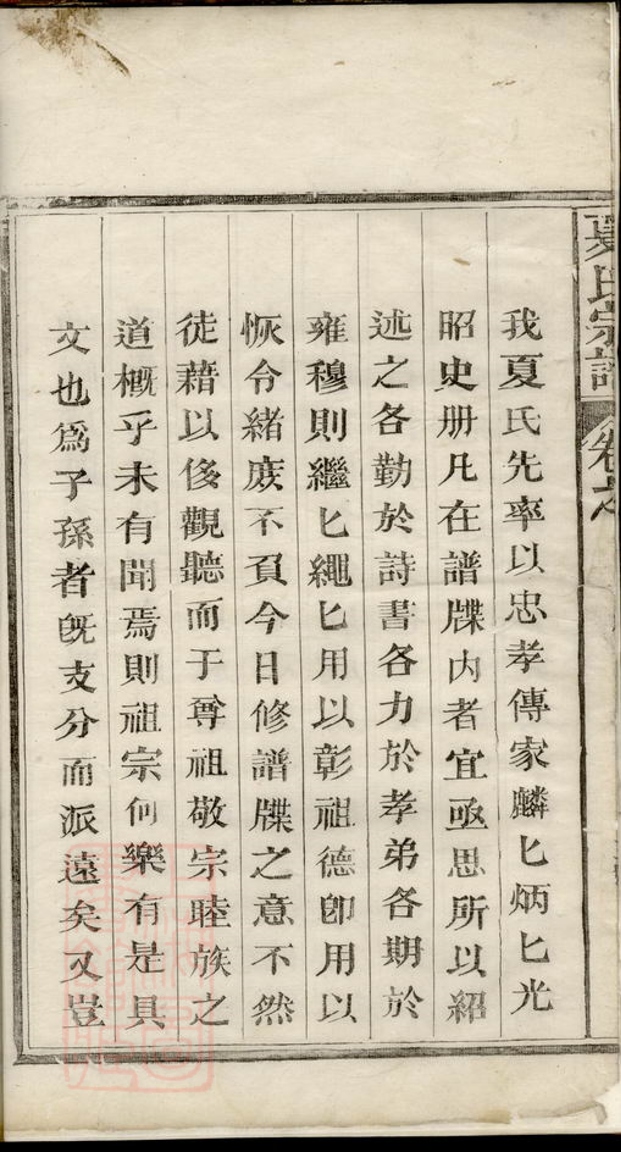 夏氏宗譜 卷之
我夏氏先率以忠孝傳家麟匕炳匕光
昭史册凡在譜牒内者宜亟思所以紹
述之各勤於詩書各力於孝弟各期於
雍穆則繼匕繩匕用以彰祖德卽用以
恢令緒庻不負今日修譜牒之意不然
徒藉以侈觀聽而于尊祖敬宗睦族之
道槪乎未有聞焉則祖宗何樂有是具
文也爲子孫者旣支分而派遠矣又豈